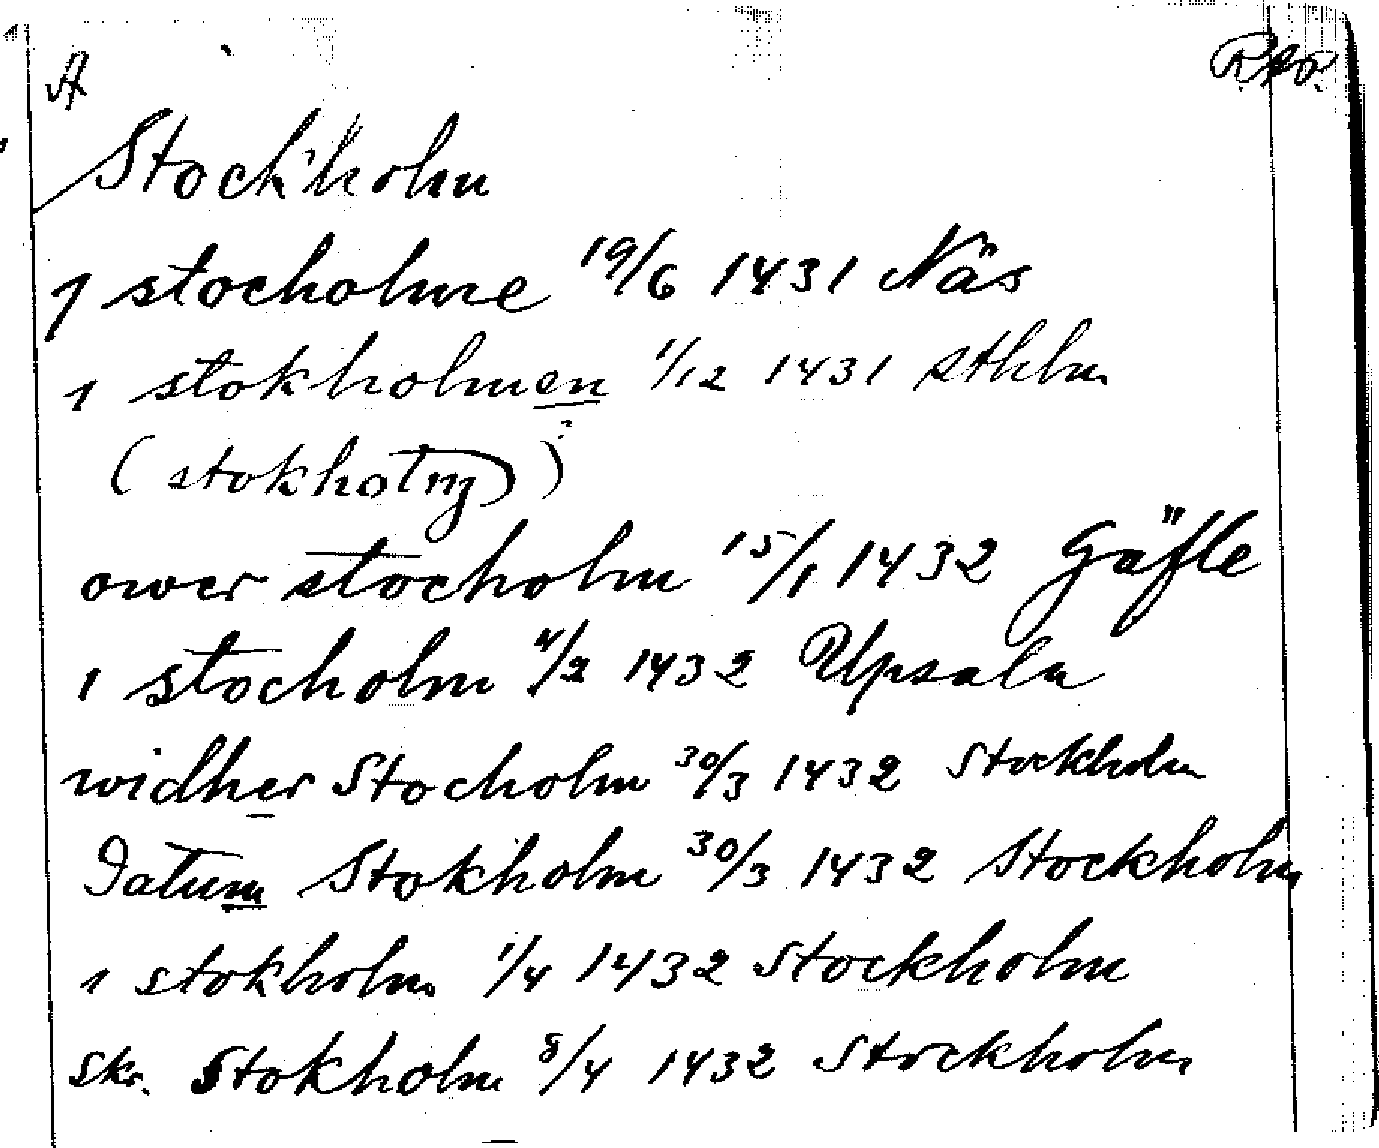 A RAP.
Stockholm
j stocholme 19/6 1431 Näs
i stokholmen 1/12 1431 Sthlm
(stokholm)?
ower stocholm 15/1 1432 Gäfle
i stocholm 4/2 1432 Upsala
widher Stocholm 30/3 1432 Stockholm
Datum Stokholm 30/3 1432 Stockholm
i stokholm 1/4 1432 Stockholm
Skr. Stokholm 8/4 1432 Stockholm